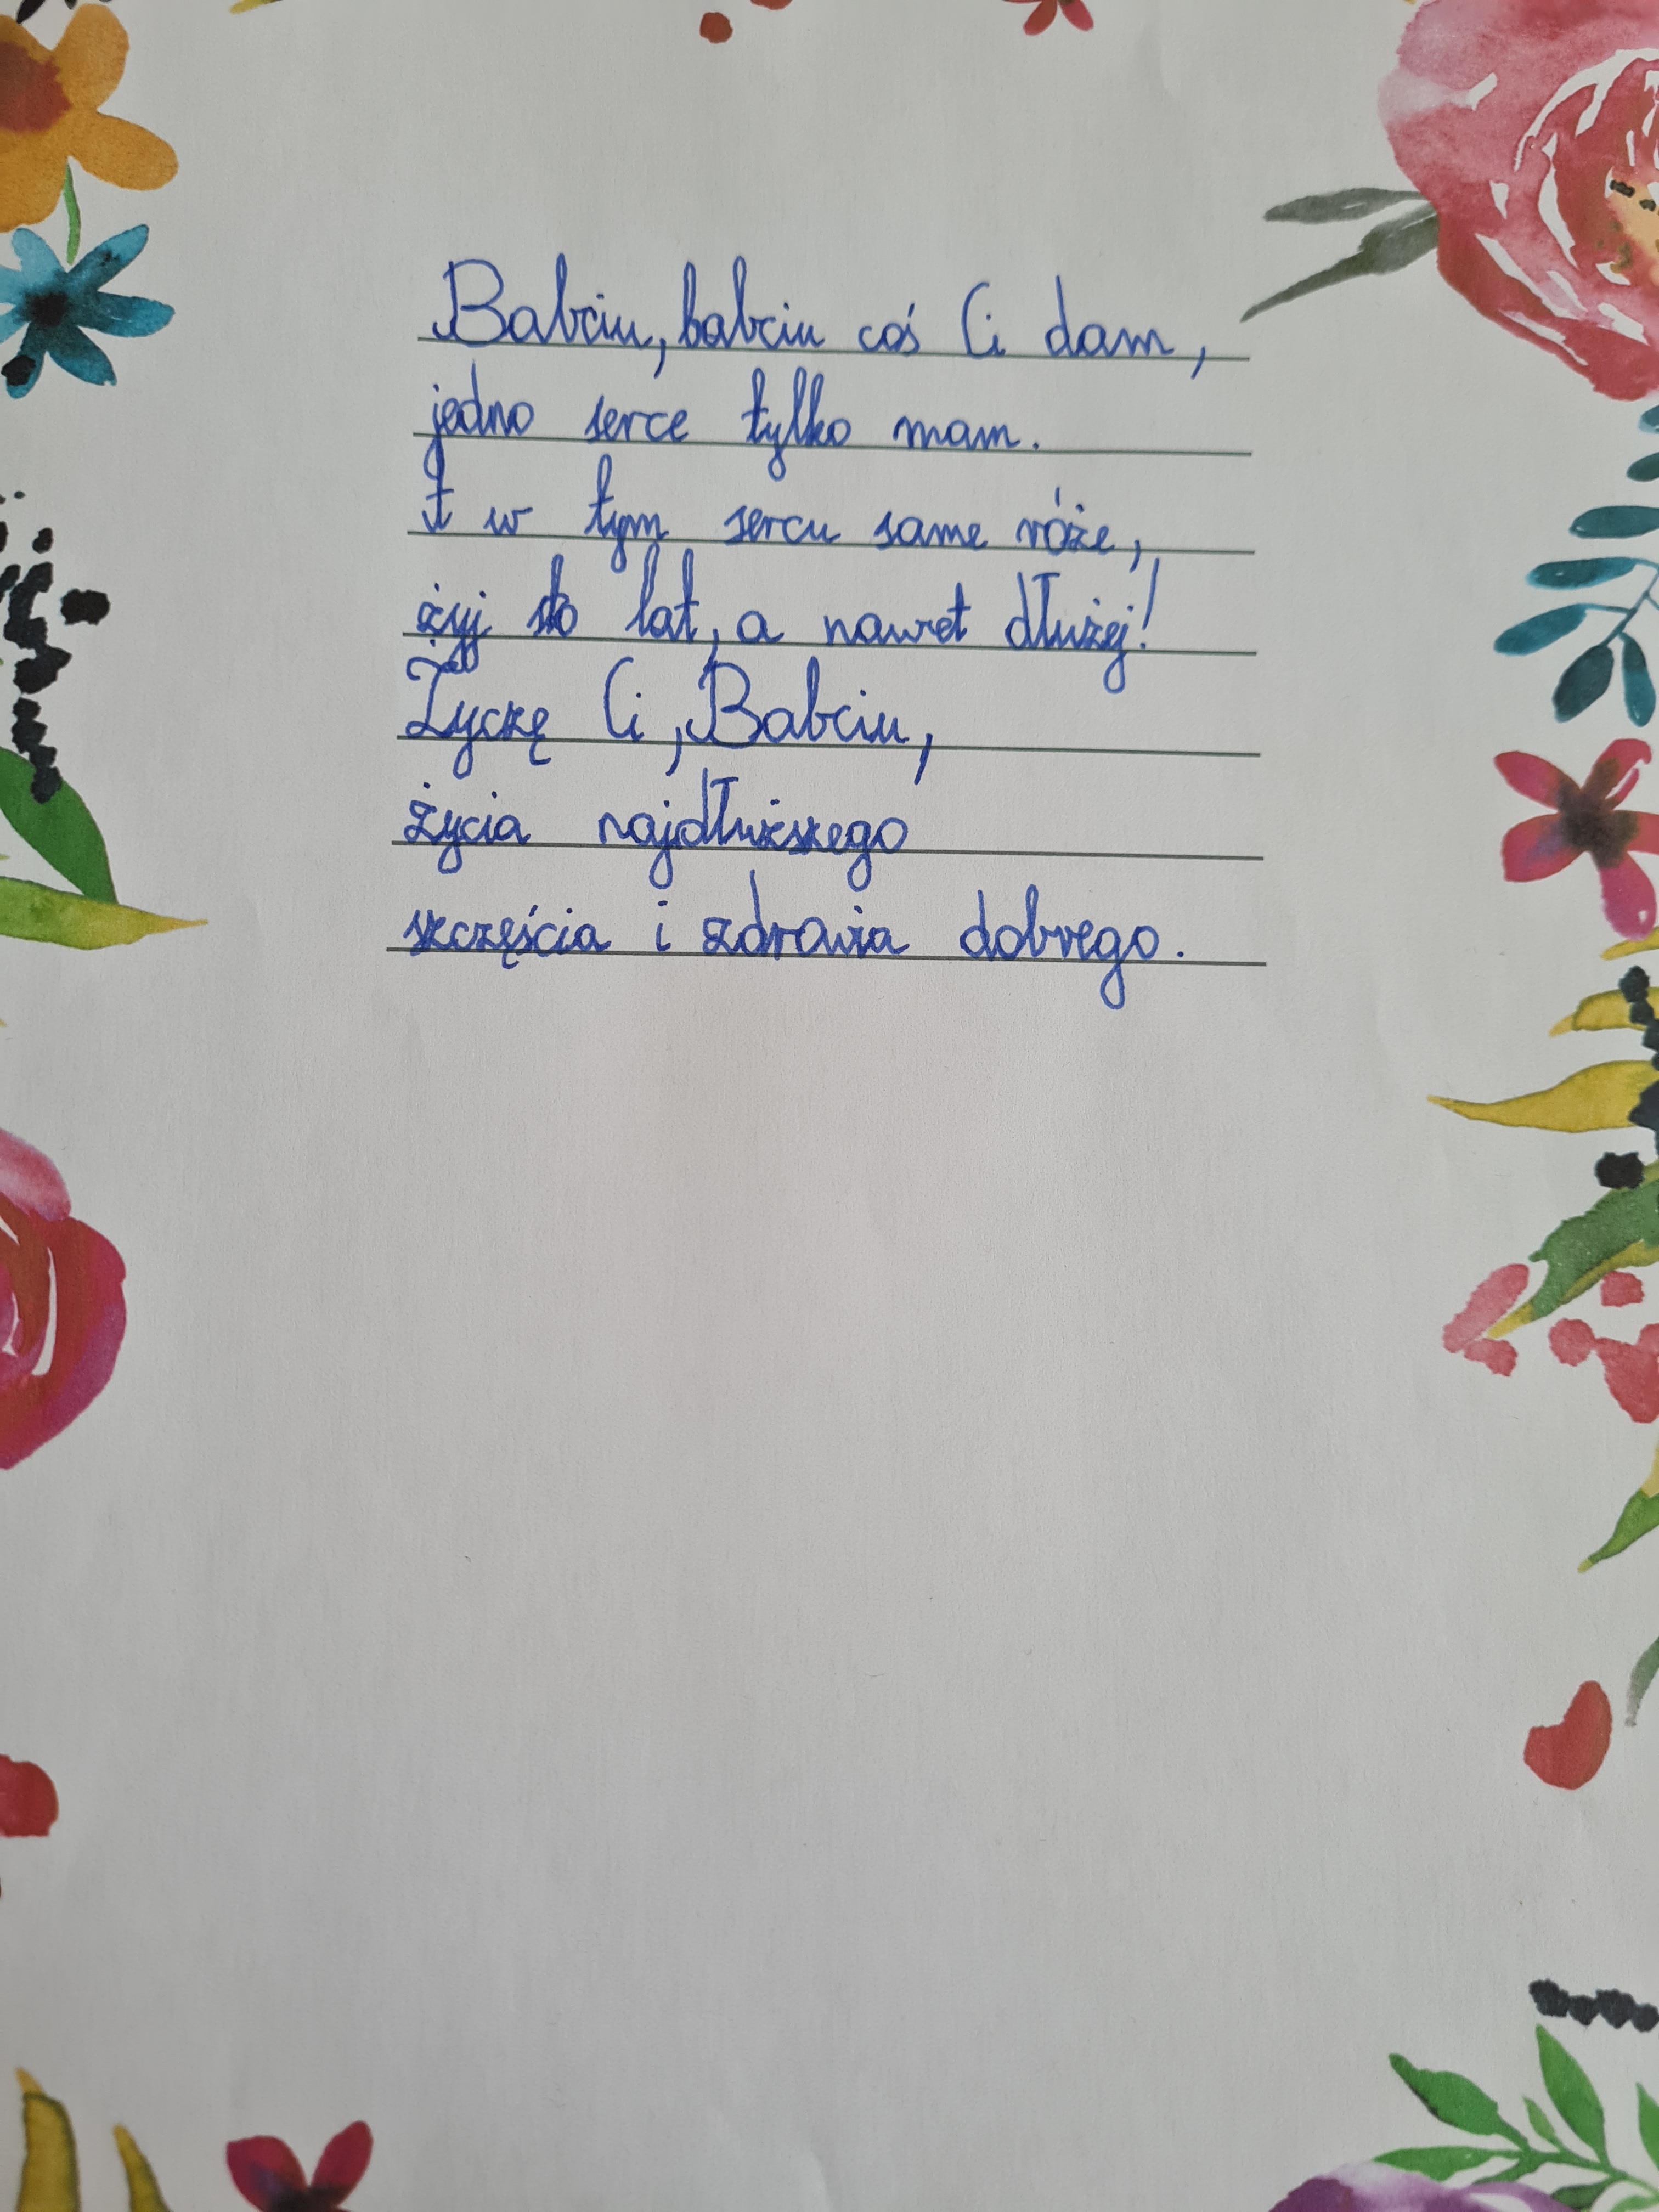 Babciu, babciu coś Ci dam,
jedno serce tylko mam.
A w tym sercu same róże,
żyj sto lat, a nawet dłużej!
Życzę Ci, Babciu,
życia najdłuższego
szczęścia i zdrowia dobrego.